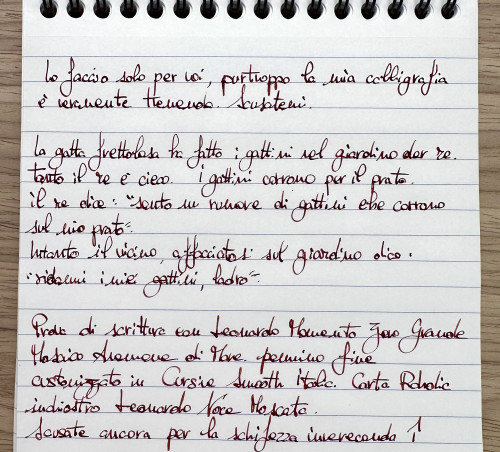 Lo faccio solo per voi, purtroppo la mia calligrafia
è veramente tremenda. Scusatemi.
La gatta frettolosa ha fatto i gattini nel giardino del re.
tanto il re è cieco. I gattini corrono per il prato.
il re dice: "sento un rumore di gattini che corrono
sul mio prato".
Intanto il vicino, affacciatosi sul giardino dice.
"ridammi i miei gattini, ladro".
Prova di scrittura con Leonardo Momento Zero Grande
Mosaico Anemone di Mare. pennino fine
customizzato in Cursive Smooth Italic. Carta Rhodia
inchiostro Leonardo Noce Moscata.
Scusate ancora per la schifezza invereconda !